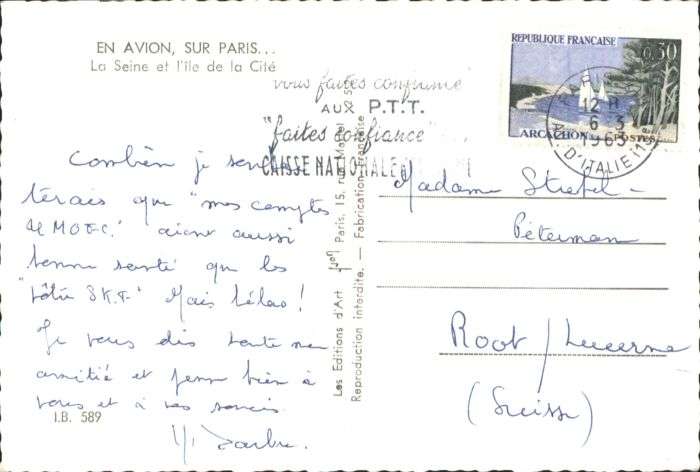 EN AVION, SUR PARIS...
La Seine et l'île de la Cité
vous faites confiance
AUX P.T.T.
"faites confiance"
CAISSE NATIONALE
REPUBLIQUE FRANÇAISE
0,30
ARCACHON
POSTES
12 H
6 3
1963
D'ITALIE (13e)
Combien je
que "mes comptes
aient aussi
bonne santé que les
Mais hélas!
Je vous dis toute ma
amitié et pense bien à
vous et à vos soucis
I.B. 589
Les Editions d'Art
Paris, 15, rue Martel
Reproduction interdite. — Fabrication Française
Madame
Péterman
Root / Lucerne
(Suisse)